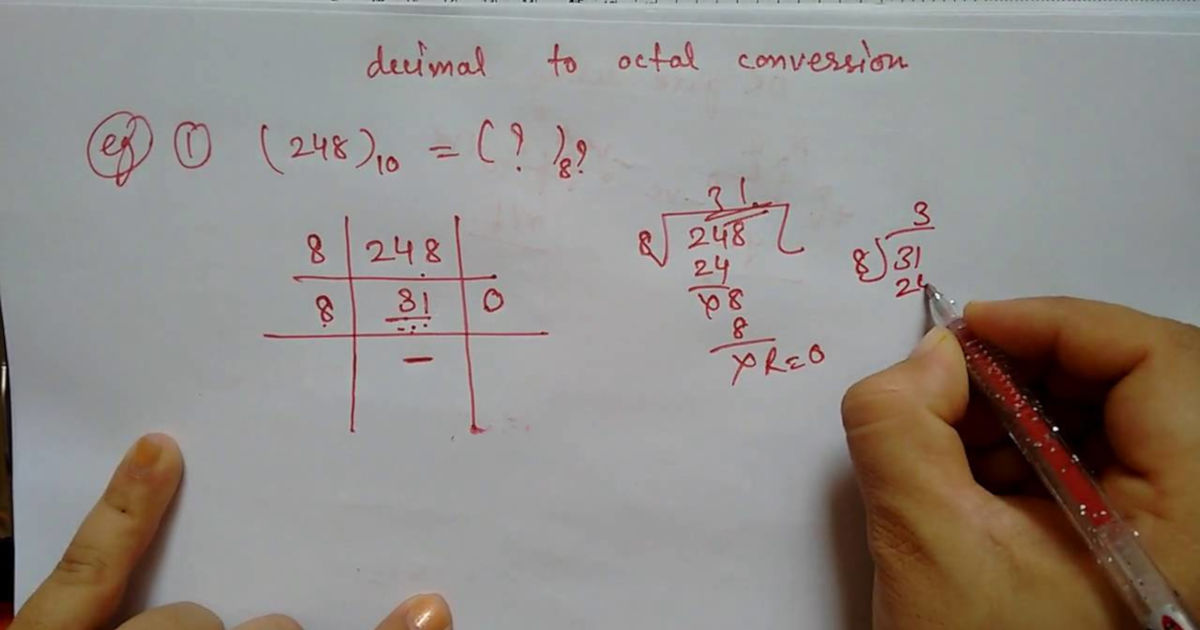 decimal to octal conversion
eg ① (248)10 = (?)8?
8 | 248
8 | 31 | 0
–
31.
8 248
24
08
8
0 R=0
3
8) 31
24